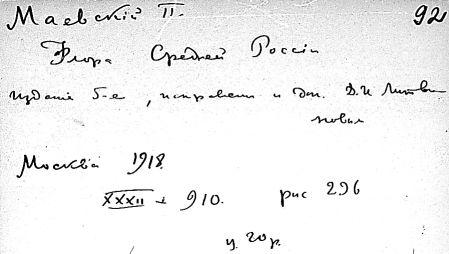 Маевскій П. 92
Флора Средней Россіи
изданіе 5-е, исправлен и доп. Д. И Литви
новым
Москва 1918.
XXXII + 910. рис 296
ц. 20 р.